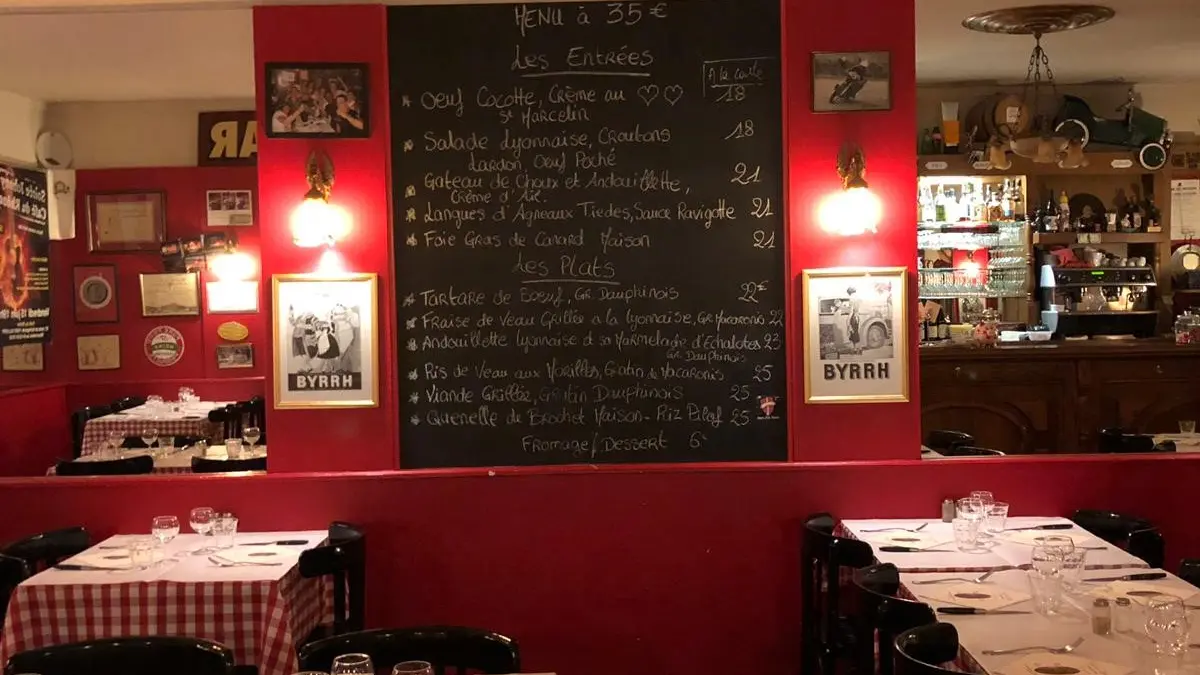 MENU à 35 €
Les Entrées
A la carte
Oeuf Cocotte, Crème au 18
St Marcelin
Salade Lyonnaise, Croutons 18
Lardon, Oeuf Poché
Gateau de Choux et Andouillette, 21
Crème d'Ail.
Langues d'Agneaux Tiedes, Sauce Ravigotte 21
Foie Gras de Canard Maison 21
Les Plats
Tartare de Boeuf, Gr. Dauphinois 22€
Fraise de Veau Grillée a la lyonnaise, Gr Macaronis 22
Andouillette Lyonnaise et sa Marmelade d'Echalotes 23
Gr. Dauphinois
Ris de Veau aux Morilles, Gratin de Macaronis 25
Viande Grillée, Gratin Dauphinois 25
Quenelle de Brochet Maison - Riz Pilaf 25
Fromage/Dessert 6€
BYRRH
BYRRH
BAR